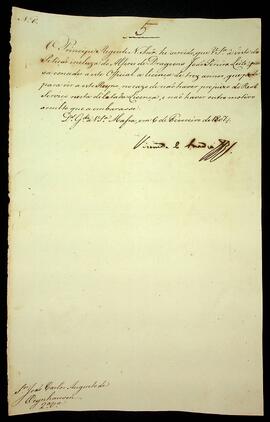 5
O Principe Regente N. Snr. he servido, que V. S.ª á vista da
Petição incluza do Alferes de Dragoens José Pereira Leite
possa conceder a este Official a licença de tres annos, que pede
para vir a este Reyno, no cazo de não haver prejuizo do Real
Serviço nesta dilatada Licença, e não haver outro motivo
occulto que o embarasse.
D.s G.e a V. S.ª Mafra, em 6 de Fevereiro de 1804.
Visconde de Anadia
Snr. João Carlos Augusto de
Oeynhausen